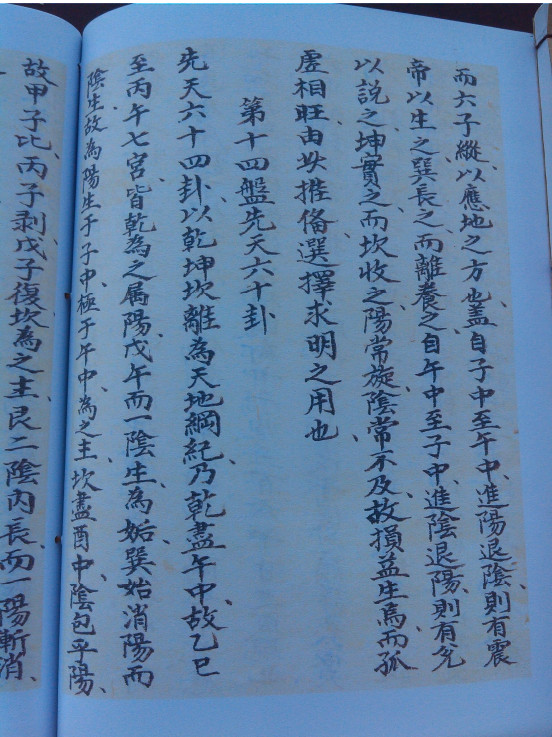 而六子縱、以應地之方也、蓋自子中至午中、進陽退陰、則有震
帝以生之、巽長之、而離養之、自午中至子中、進陰退陽、則有兌
以說之、坤實之、而坎收之、陽常旋、陰常不及、故損益生焉、而孤
虛相旺、由此推备選擇求明之用也、
第十四盤先天六十卦
先天六十四卦、以乾坤坎離為天地綱紀、乃乾盡午中、故乙巳
至丙午七宮、皆乾為之屬陽、戊午而一陰生、為姤、巽始消陽而
陰生、故為陽生于子中、極于午中、為之主、坎盡酉中、陰包乎陽、
故甲子比、丙子剥、戊子復、坎為之主、艮二陰內長、而一陽斬消、